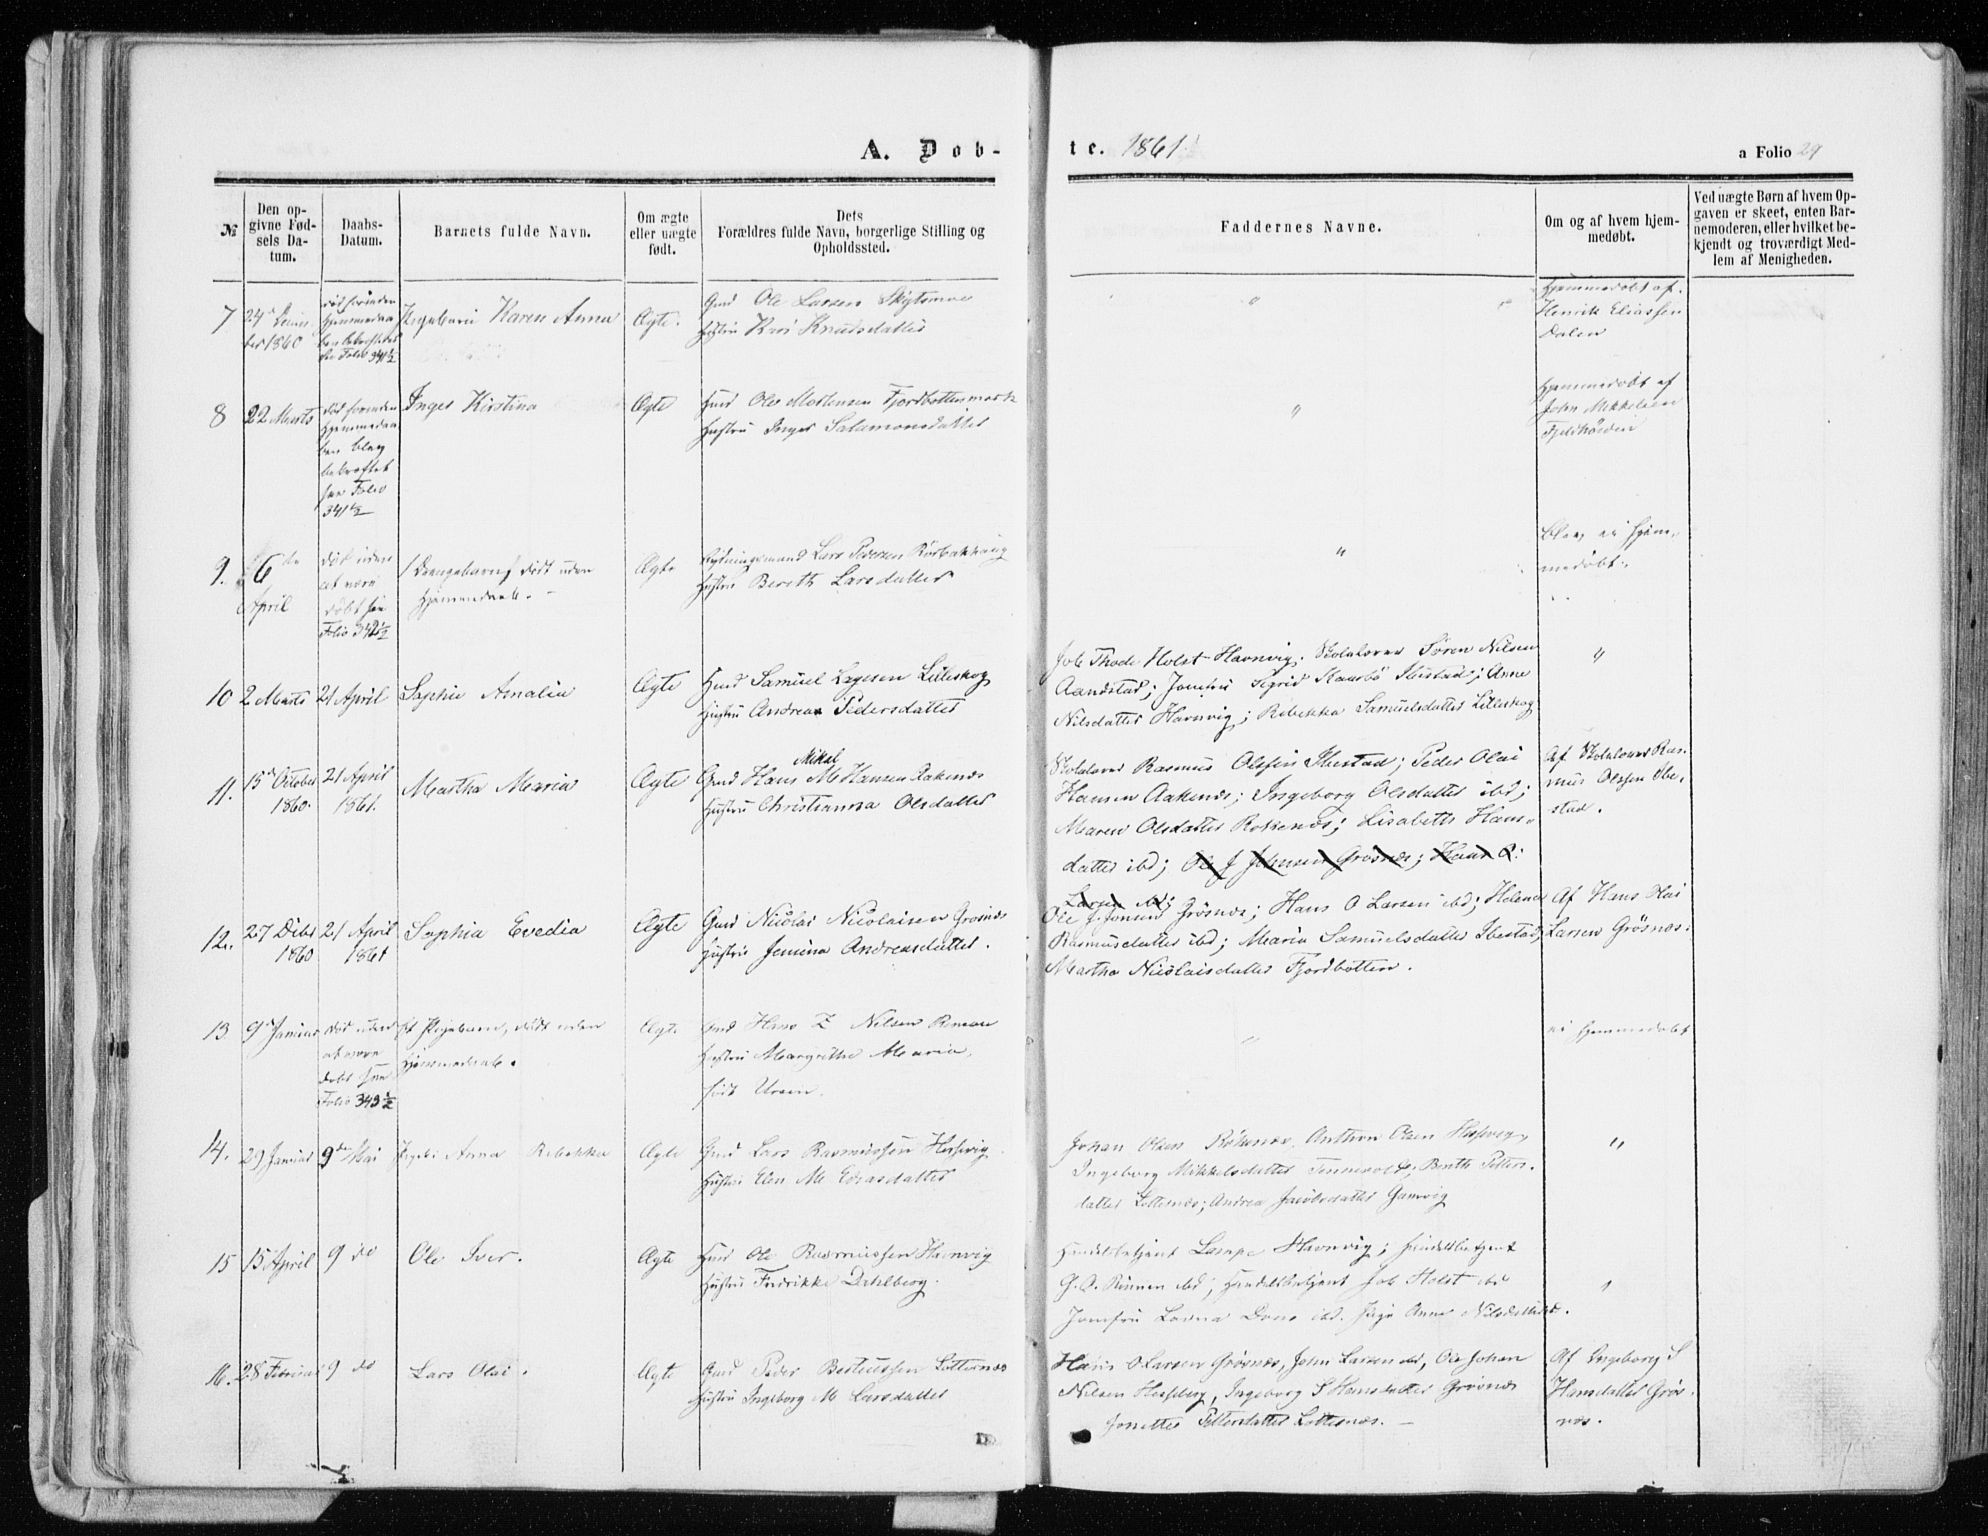 A. Døb-
te. 1861.
a Folio 29
№
Den op-
givne Fød-
sels Da-
tum.
Daabs-
Datum.
Barnets fulde Navn.
Om ægte
eller uægte
født.
Dets
Forældres fulde Navn, borgerlige Stilling og
Opholdssted.
Faddernes Navne.
Om og af hvem hjem-
medøbt.
Ved uægte Børn af hvem Op-
gaven er skeet, enten Bar-
nemoderen, eller hvilket be-
kjendt og troværdigt Med-
lem af Menigheden.
7
ber 1860
død forinden
Hjemmedaa
ben bekræftet
see Folio 341½
Karen Anna
Ægte.
Gmd Ole Larsen
Hustru Kari Knudsdatter
"
Hjemmedøbt af
Henrik Eliassen
Dalen
8
22 Marts
død forinden
Hjemmedaa
ben blev
bekræftet
see Folio
341½
Inger Kirstina
Ægte
Hmd Ole Mortensen Fjordbottenmark
Hustru Inger Salamonsdatter
"
Hjemmedøbt af
John Mikkelsen
9.
6 de
April
død uden
at være
døbt see
Folio 342½
1 Drengebarn, dødt uden
Hjemmedaab. -
Ægte
Rydningsmand Lars Pedersen
Hustru Bereth Larsdatter
"
blev ei hjem-
medøbt.
10
2 Marts
21 April
Sophie Amalia
Ægte
Hmd Samuel Lilleskog
Hustru Andrea Pedersdatter
Job Thode Holst Havnvig; Skolelærer Søren Nilsen
Aandstad; Jomfru Sigrid Kaarbø Ibestad; Anne
Nilsdatter Havnvig; Rebekka Samuelsdatter Lilleskog
"
11.
15de October
1860.
21 April
1861.
Martha Maria
Ægte
Mikal
Gmd Hans M Hansen Aakenæs
Hustru Christianna Olsdatter
Skolelærer Rasmus Olsen Ibestad; Peder Olai
Hansen Aakenæs; Ingeborg Olsdatter ibd;
Maren Olsdatter Rokenæs; Lisabeth Hans-
datter ibd; Ole J Johnsen Grøsnæs; Hans O:
Larsen ibd;
Af Skolelærer Ras-
mus Olsen Ibe-
stad.
12.
27 Decbr
1860
21 April
1861
Sophia Evedia
Ægte
Gmd Nicolai Nicolaisen Grøsnæs
Hustru Jemina Andreasdatter.
Ole J. Jonsen Grøsnæs; Hans O Larsen ibd; Helena
Rasmusdatter ibd; Maria Samuelsdatter Ibestad;
Martha Nicolaisdatter Fjordbotten.
Af Hans Olai
Larsen Grøsnæs.
13
9de Januar
død uden
at være
døbt see
Folio 343½
et Pigebarn, dødt uden
Hjemmedaab.
Ægte
Gmd Hans Z Nilsen
Hustru Margrethe Maria
"
ei hjemmedøbt
14.
29 Januar
9de Mai
Anna Rebekka
Ægte
Gmd Lars Rasmussen Hesvig
Hustru Elen M Edisdatter
Johan Olsen Rökenæs, Anthon Olsen
Ingeborg Mikkelsdatter Tennevold; Berith Peters-
datter Lotternæs; Andrea Jacobsdatter Gamvig
"
15
15 April
9 do
Ole Iver.
Ægte
Hmd Ole Rasmussen Havnvig
Hustru Fredrikke Dahlberg.
Handelsbetjent Lampe Havnvig; Handelsbetjent
ibd; Handelsbetjent Job Holst ibd
Jomfru Lovna Dons ibd. Pige Anne Nilsdatter ibd.
"
16.
28 Februar
9 do
Lars Olai.
Ægte
Gmd Peder Bertiussen Lotternæs
Hustru Ingeborg M Larsdatter
Hans O Larsen Grøsnæs, John Larsen ibd, Ole Johan
Nilsen, Ingeborg S Hansdatter Grøsnæs
Jonette Pettersdatter Lotternæs. -
Af Ingeborg S
Hansdatter Grøs-
næs.